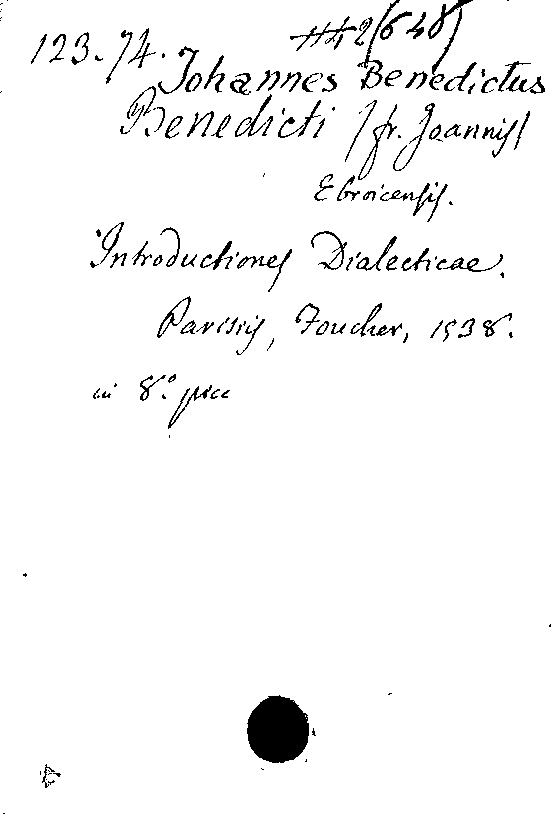 123.74. 2(648)
Johannes Benedictus
Benedicti / fr. Joannis /
Ebroicensis.
Introductiones Dialecticae.
Parisiis, Foucher, 1538.
in 8.°